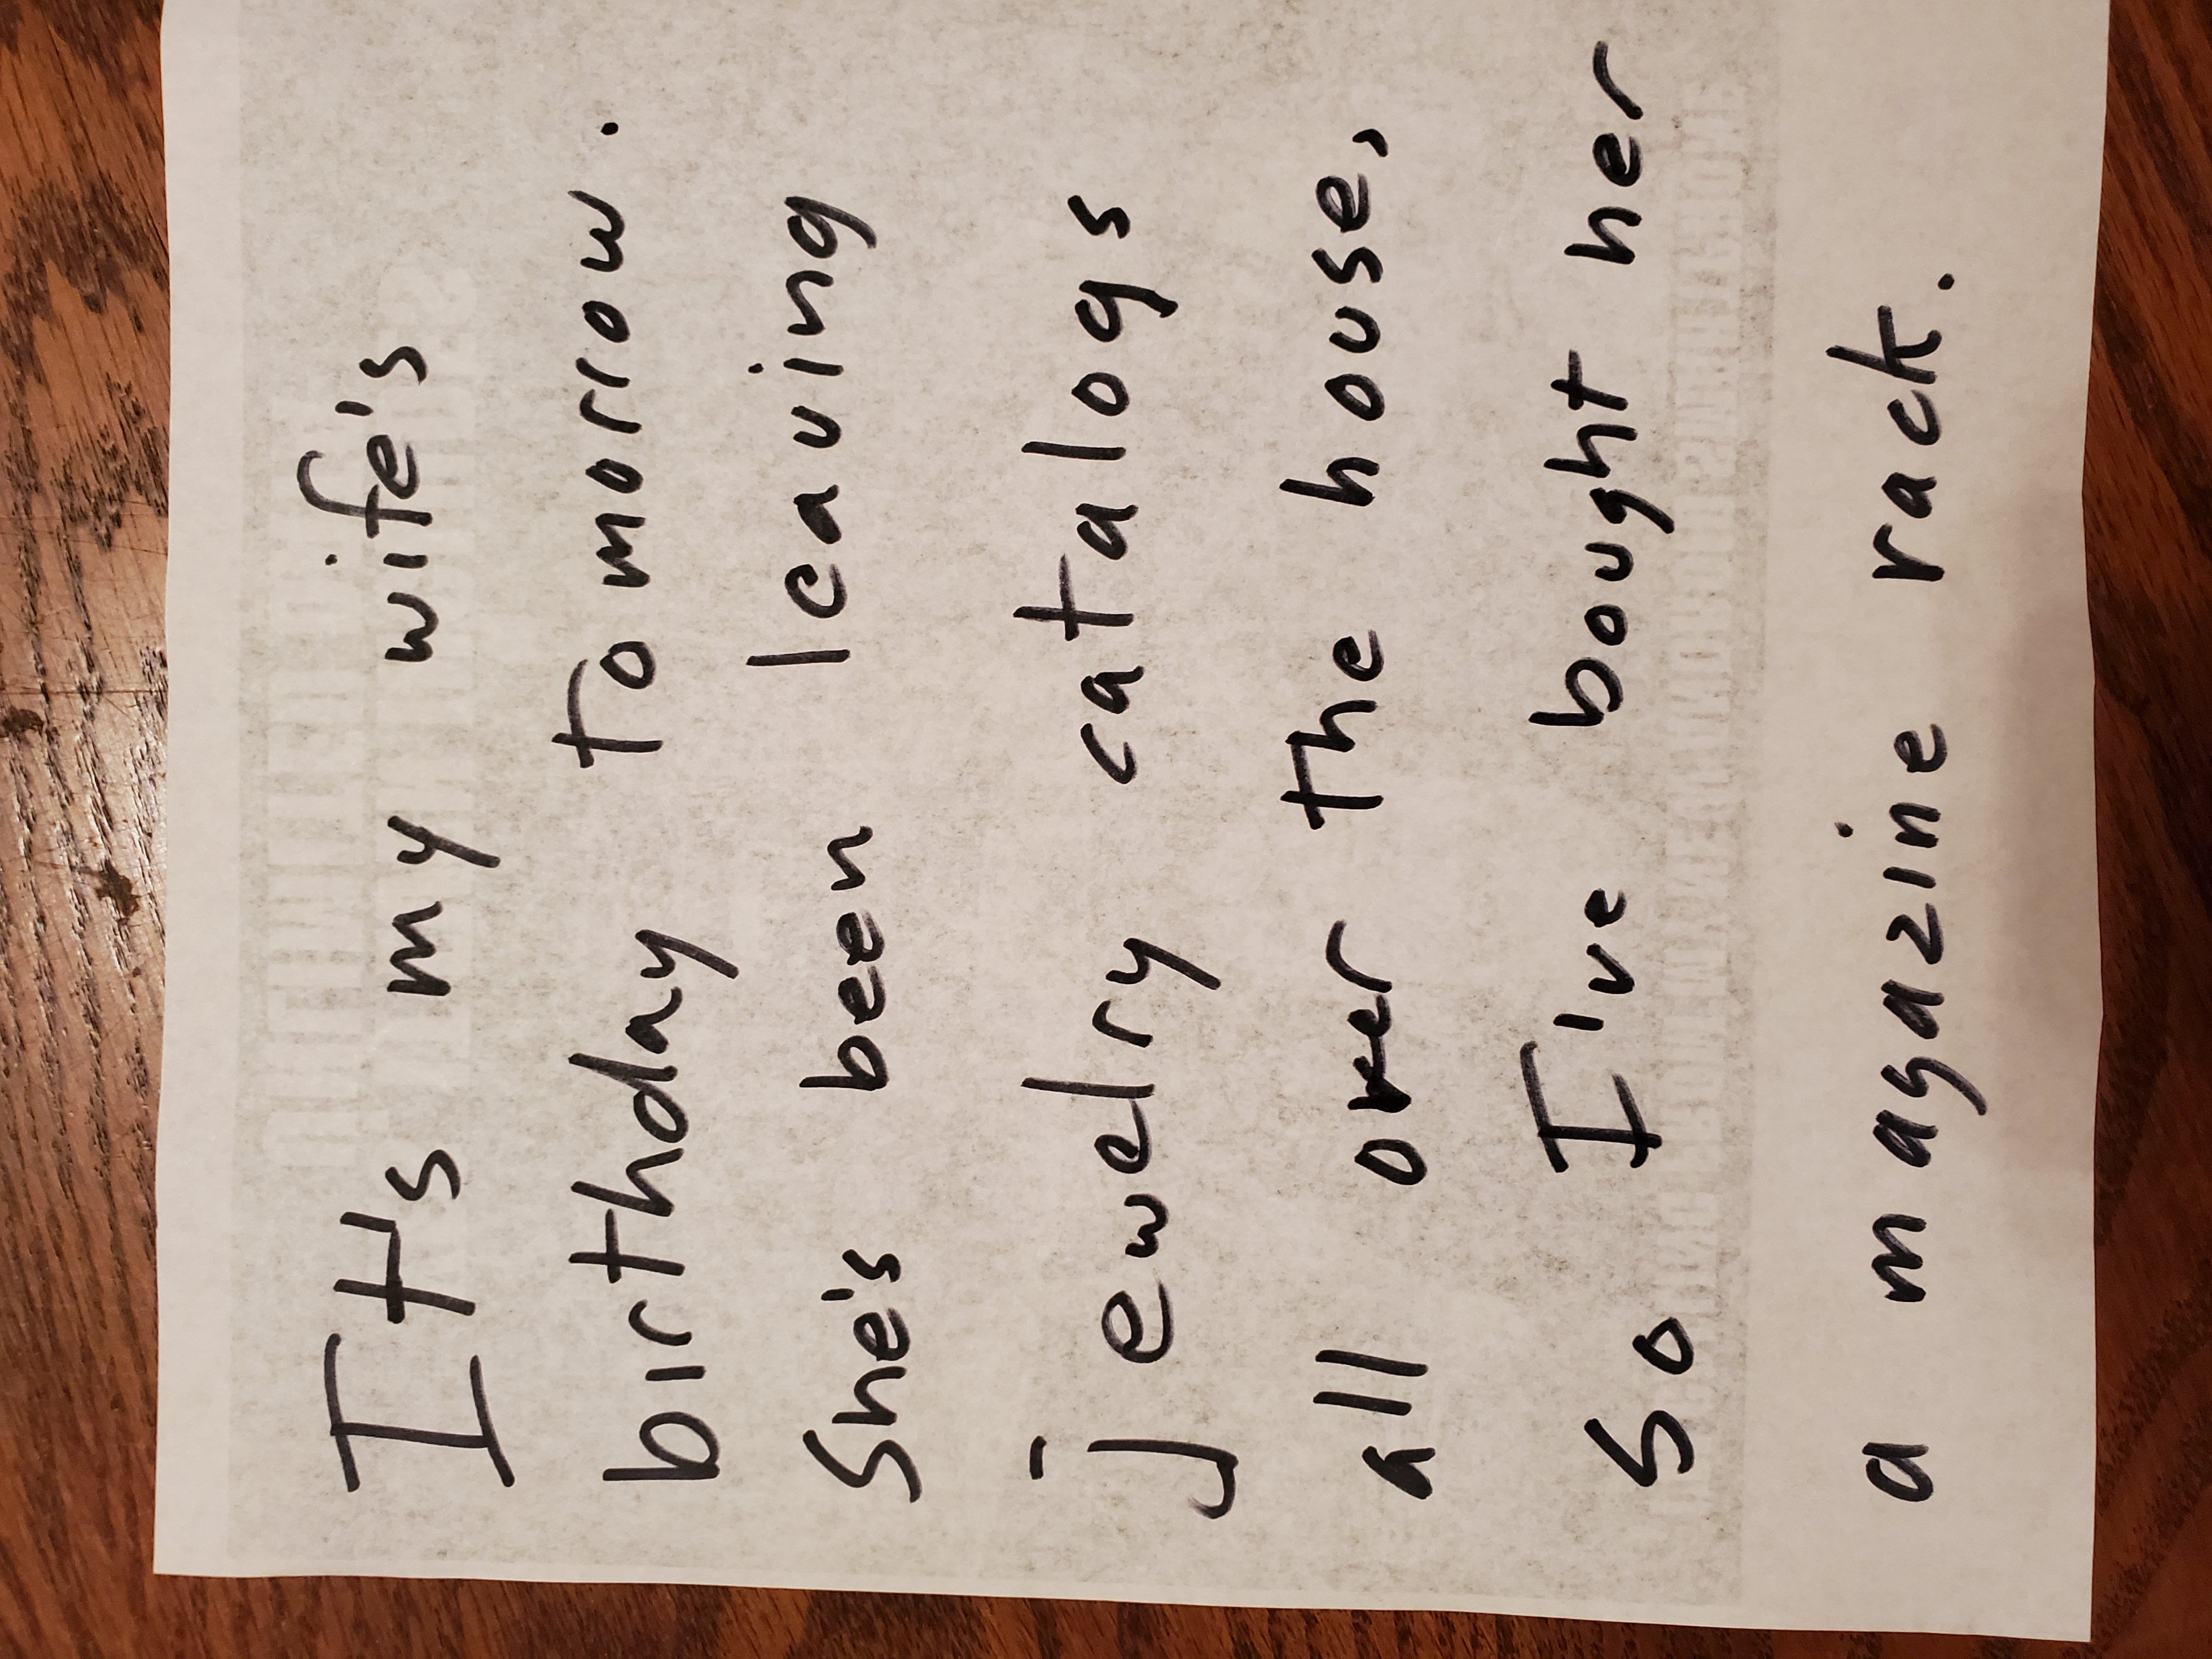 It's my wife's
birthday tomorrow.
She's been leaving
jewelry catalogs
all over the house,
so I've bought her
a magazine rack.